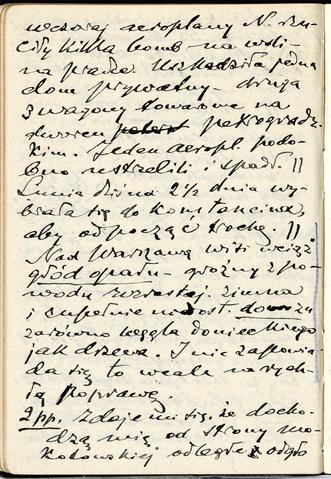 wczoraj aeroplany N. rzu-
ciły kilka bomb na woli-
na pradze. Uszkodziła jedna
dom prywatny - druga
3 wagony towarowe na
dworcu petrogradz-
kim. Jeden aeropl. podo-
bno zestrzelili i spadł. ||
Lunia dziś na 2½ dnia wy-
brała się do Konstancina,
aby odpocząć trochę. ||
Nad Warszawą wisi wciąż
głód opału - groźny z po-
wodu wzrastaj. zimna
i zupełnie niedost. dowozu
zarówno węgla donieckiego
jak drzewa. I nic zapowia-
da się to wcale na rych-
łą poprawę.
2 pp. Zdaje mi się, że docho-
dzą mię od strony mo-
kotowskiej odległe odgło